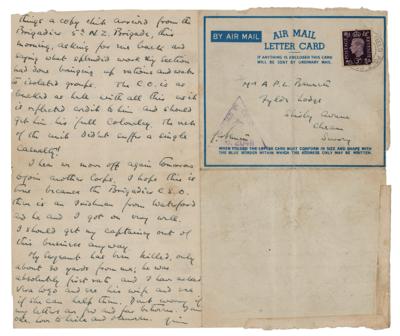 things a copy chit arrived from the
Brigadier 5th N.Z. Brigade, this
morning, asking for me back and
saying what splendid work my section
had done bringing up rations and water
to isolated groups. The C.O. is as
bucked as hell with all this as it
is reflected credit to him and should
get him his full Colonelcy. The rest
of the unit didn't suffer a single
casualty!
I hear we move off again tomorrow
to join another Corps. I hope this is
true because the Brigadier C.S.O.
there is an Irishman from Waterford
and he and I got on very well.
I should get my captaincy out of
this business anyway.
My sergeant has been killed, only
about 30 yards from me; he was
absolutely first rate and I have asked
to go and see his wife and see
if she can help them. Don't worry if
my letters are few and far between.
love to and
Jim
BY AIR MAIL
AIR MAIL
LETTER CARD
IF ANYTHING IS ENCLOSED THIS CARD
WILL BE SENT BY ORDINARY MAIL.
Mrs A.P.L.
Lodge
Avenue
Cheam
Surrey
WHEN FOLDED THE LETTER CARD MUST CONFORM IN SIZE AND SHAPE WITH
THE BLUE BORDER WITHIN WHICH THE ADDRESS ONLY MAY BE WRITTEN.